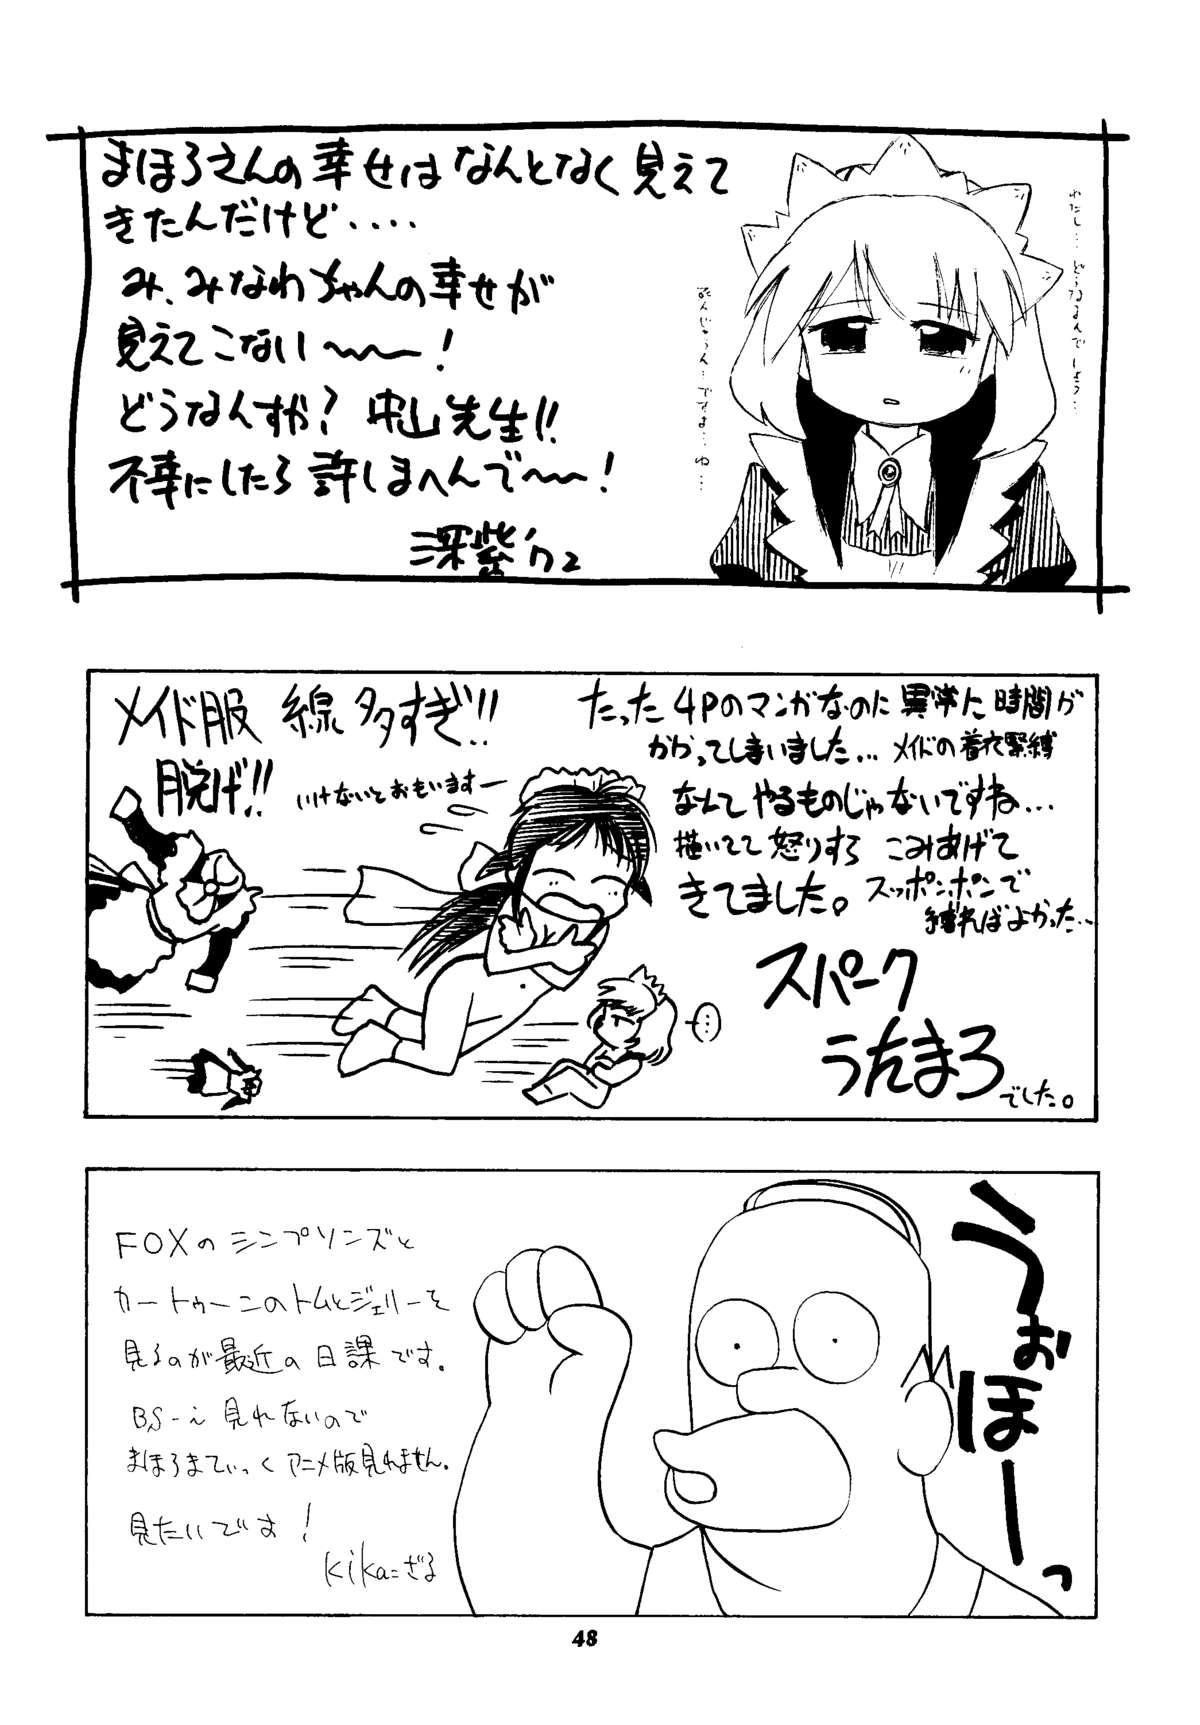 まほろさんの幸せはなんとなく見えて
きたんだけど‥‥
み、みなわちゃんの幸せが
見えてこない〜〜！
どうなんすか？中山先生!!
不幸にしたら許しまへんで〜〜！
深紫'02
わたし…どうなるんでしょう…
メイド服 線多すぎ!!
脱げ!!
いけないとおもいますー
たった4Pのマンガなのに異常に時間が
かかってしまいました… メイドの着衣緊縛
なんてやるものじゃないですね…
描いてて怒りすら こみあげて
きてました。スッポンポンで
縛ればよかった…
スパーク
うたまろ
でした。
…
うぉほーっ
FOXのシンプソンズと
カートゥーンのトムとジェリーを
見るのが最近の日課です。
BS-i見れないので
まほろまてぃっくアニメ版見れません。
見たいです！
kika=ざる
48